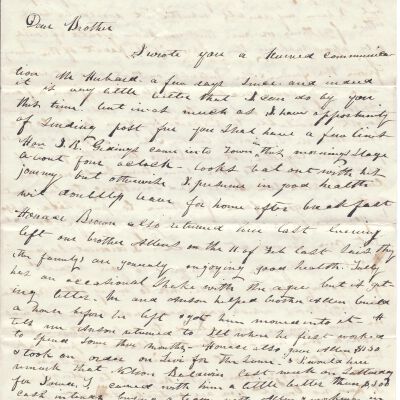 Dear Brother
I wrote you a Hurried communica-
tion Mr Hubard a few days since and indeed
it is very little better that I can do by you
this time. but in as much as I have opportunity
of sending post free you shall have a few lines
Hon J. R. Giddings came into Town this morning's stage
about four oclock - looks but out with his
journey but otherwise I presume in good health
will doubtless leave for home after breakfast
Horace Brown also returned here last evening
left our brother Allens on the 11 of Feb last said they
(the family) are generaly enjoying good health.
has an occasional shake with the ague but is get-
ing better. He and Anson helped brother Allen build
a house before he left & got him moved into it - H
tells me Anson returned to Ill where he first worked
to spend some three months - Horace also gave Allen $130
& took an order on Levi for the same & I would here
remark that Nelson Baldwin last week on Saturday
for Iowa. I carried with him a little better than $300
cash